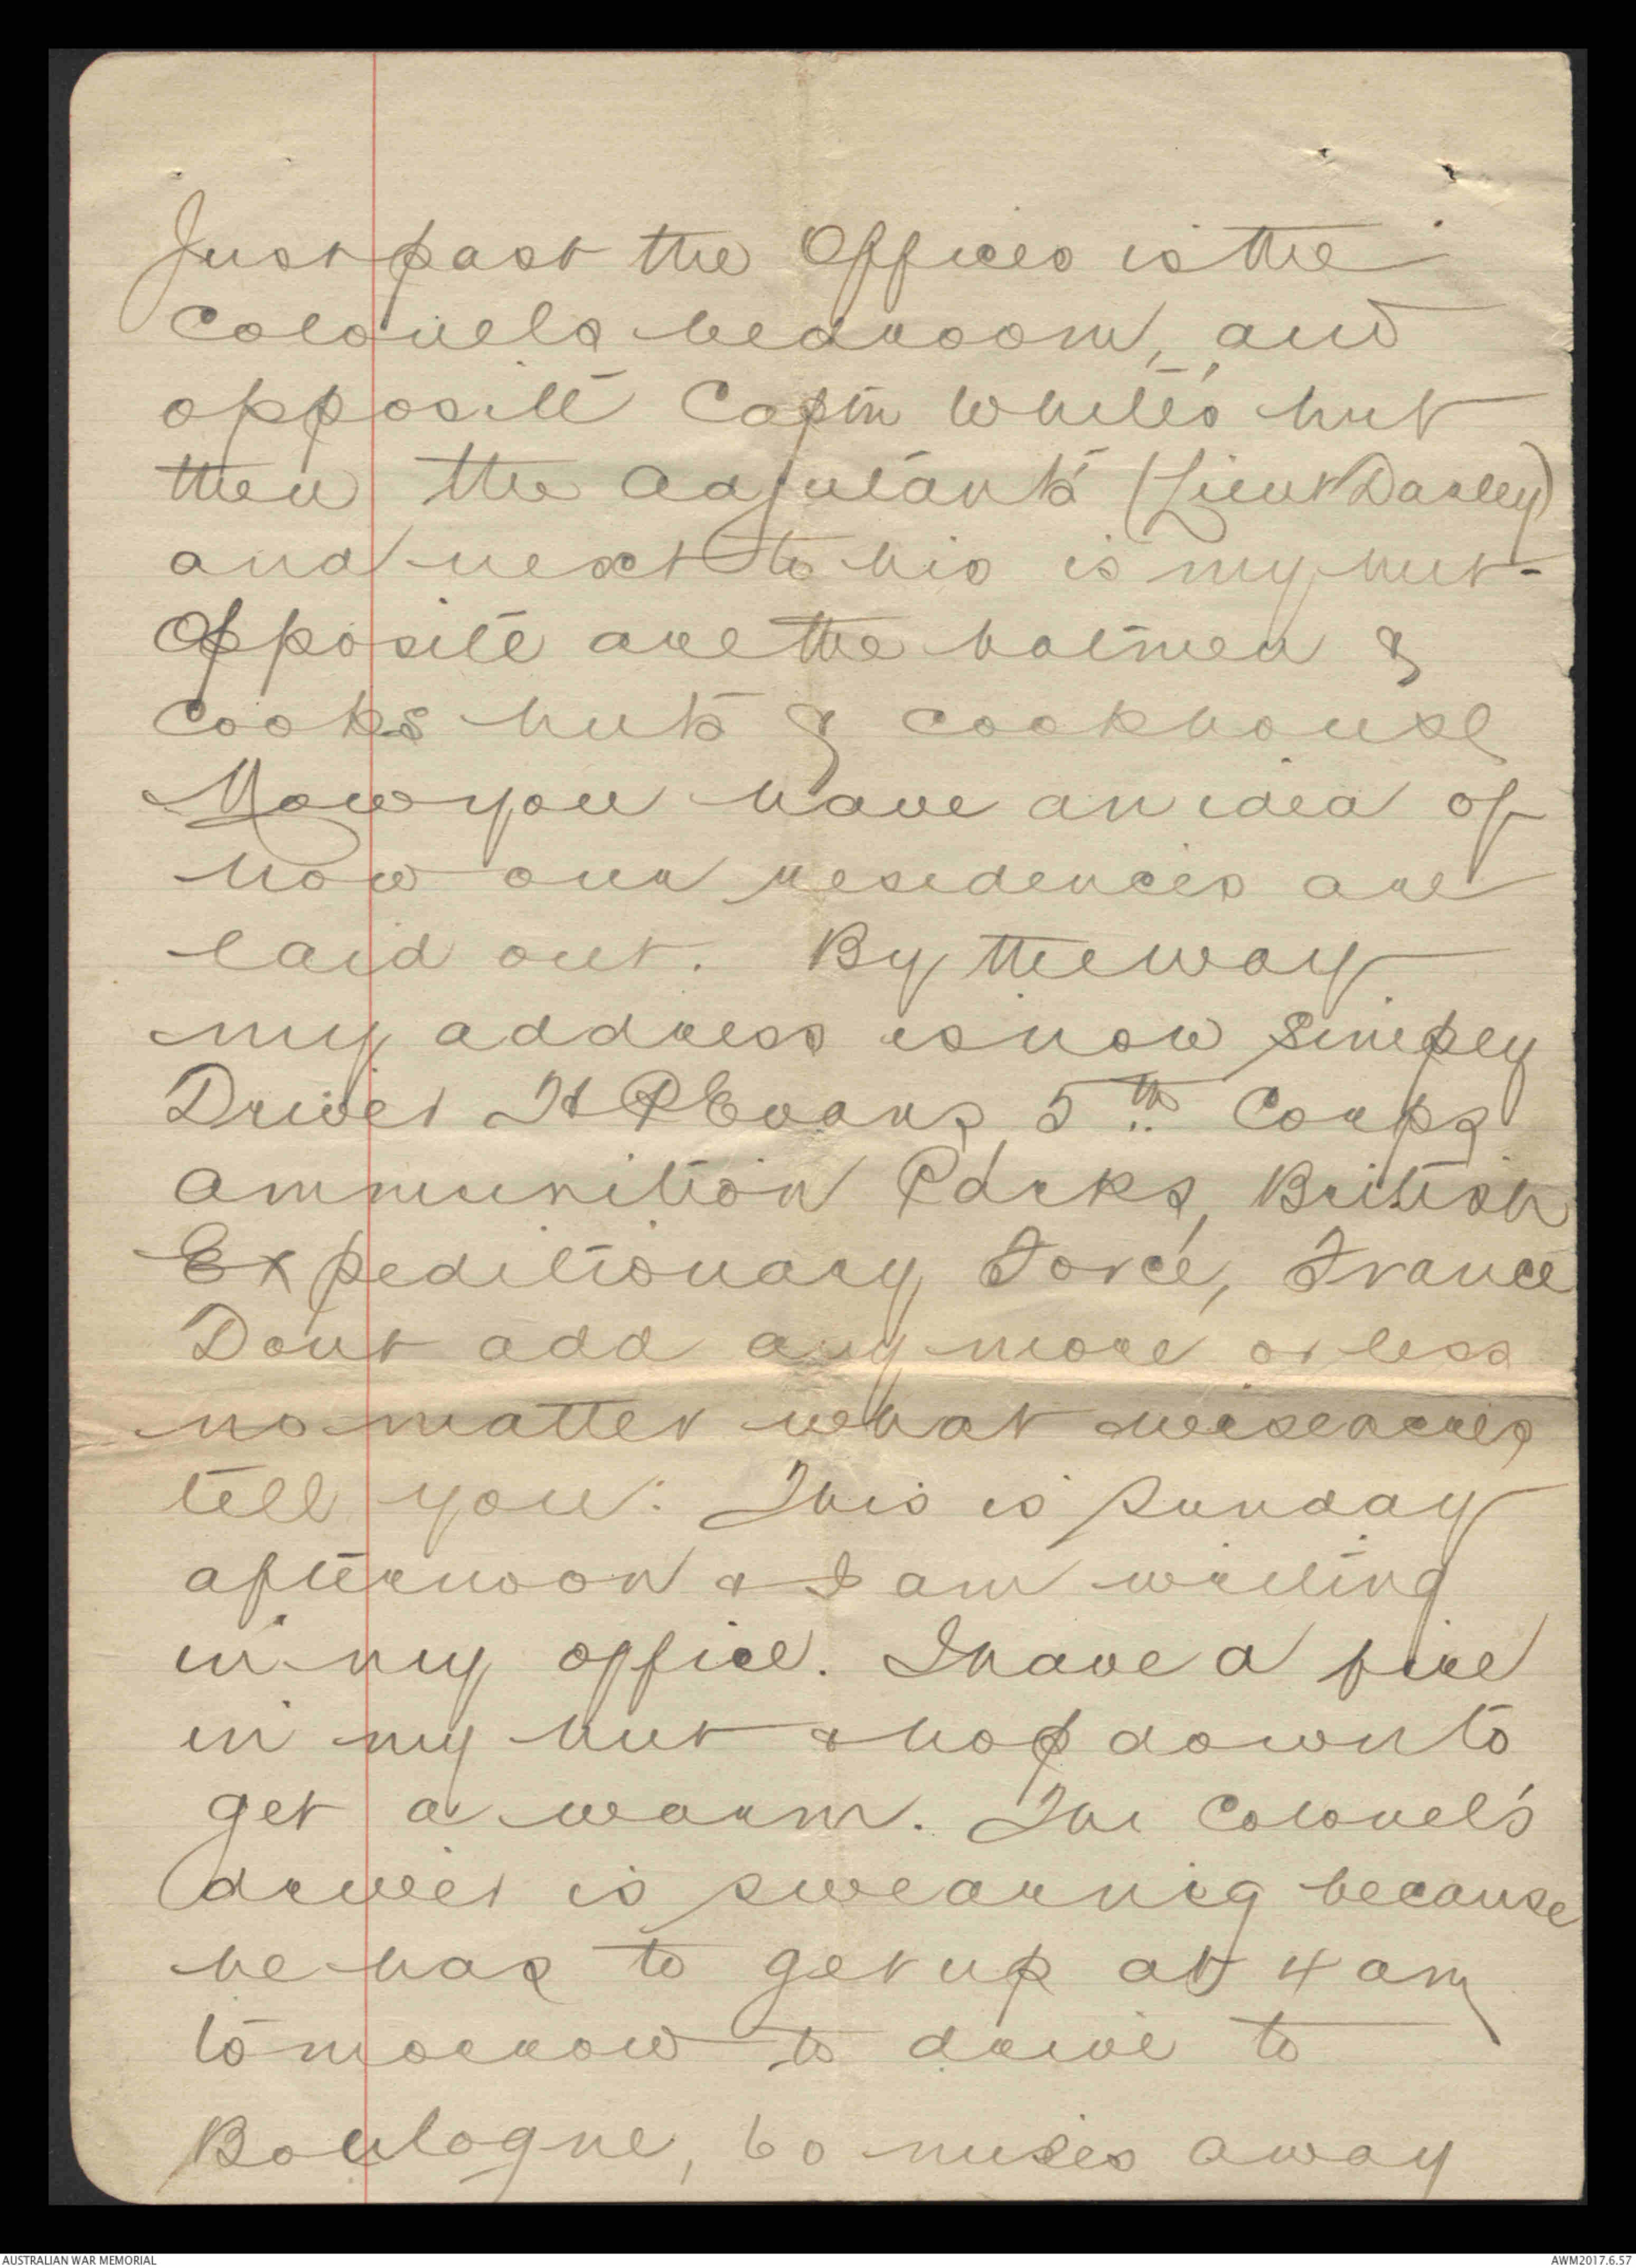 Just past the Offices is the
Colonels bedroom, and
opposite Captn White's hut
then the Adjutant's (Lieut Darley)
and next to his is my hut-
Opposite are the batmen &
Cooks huts & cookhouse
Now you have an idea of
how our residences are
laid out. By the way
my address is now simply
Driver H P Evans, 5th Corps
Ammunition Parks, British
Expeditionary Force, France
Dont add any more or less
no matter what wiseacres
tell you. This is Sunday
afternoon & I am writing
in my office. I have a fire
in my hut & hop down to
get a warm. The Colonel's
driver is swearing because
he has to get up at 4 am
tomorrow to drive to
Boulogne, 60 miles away
AUSTRALIAN WAR MEMORIAL
AWM2017.6.57